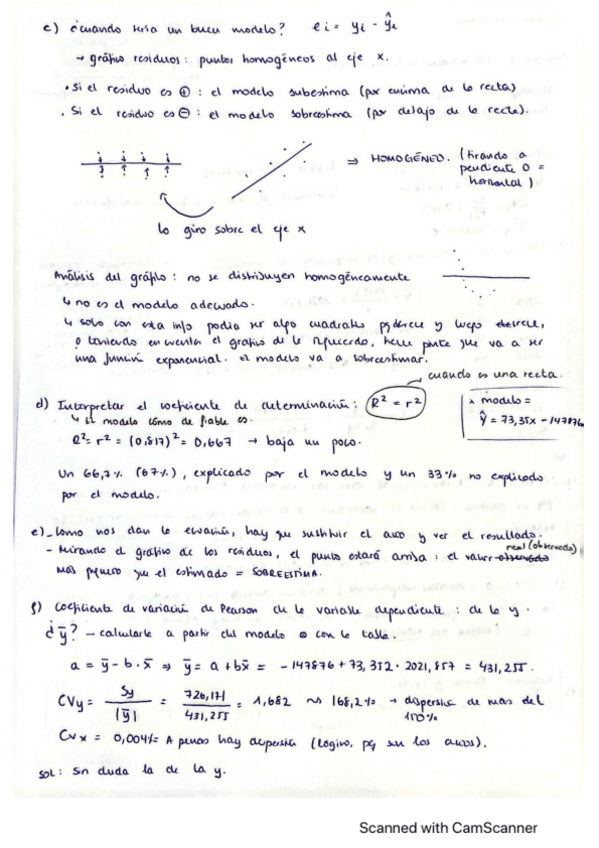 c) ¿cuando sería un buen modelo? ei = yi - ŷi
→ gráfico residuos: puntos homogéneos al eje x.
· Si el residuo es ⊕: el modelo subestima (por encima de la recta)
· Si el residuo es ⊖: el modelo sobreestima (por debajo de la recta).
⇒ HOMOGÉNEO. (tirando a
pendiente 0 =
horizontal).
lo giro sobre el eje x
Análisis del gráfico: no se distribuyen homogéneamente
↳ no es el modelo adecuado.
↳ solo con esta info podía ser algo cuadrático y luego
o teniendo en cuenta el gráfico de la izquierda, tiene pinta que va a ser
una función exponencial. El modelo va a sobreestimar.
cuando es una recta.
d) Interpretar el coeficiente de determinación: R² = r²
↳ el modelo cómo de fiable es
modelo =
ŷ = 73,35x - 147876
R² = r² = (0,817)² = 0,667 → baja un poco.
Un 66,7% (67%), explicado por el modelo y un 33% no explicado
por el modelo.
e) - Como nos dan la ecuación, hay que sustituir el año y ver el resultado.
- Mirando el gráfico de los residuos, el punto estará arriba: el valor real (observado)
más pequeño que el estimado = SOBREESTIMA.
f) Coeficiente de variación de Pearson de la variable dependiente: de la y.
¿ȳ? - calcularla a partir del modelo o con la tabla.
a = ȳ - b · x̄ ⇒ ȳ = a + bx̄ = - 147876 + 73,352 · 2021,857 = 431,255.
CVy = Sy / |ȳ| = 726,171 / 431,255 = 1,682 ~> 168,2% → dispersión de más del
100%
CVx = 0,004% = A penas hay dispersión (lógico, pq son los años).
sol: sin duda la de la y.
Scanned with CamScanner